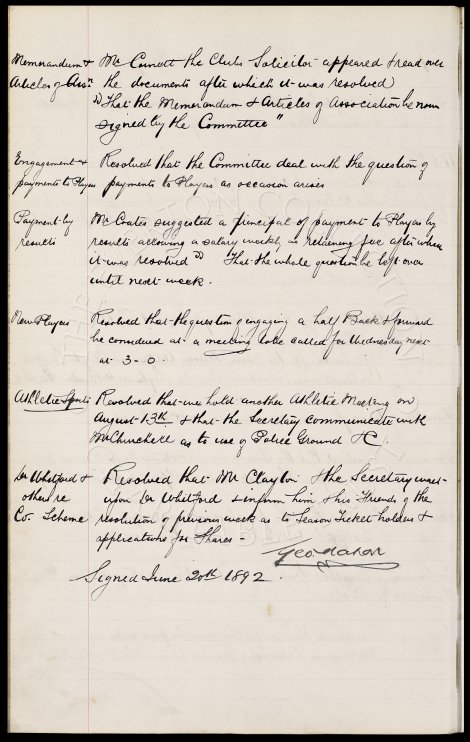 Memorandum & Articles of Assn
Mr the Clubs Solicitor appeared & read over
the documents after which it was resolved
"That the Memorandum & Articles of Association be now
signed by the Committee"
Engagement & payments to Players
Resolved that the Committee deal with the question of
payments to Players as occasion arises
Payment by results
Mr Coates suggested a principal of payment to Players by
results allowing a salary weekly as retaining fee after when
it was resolved "That the whole question be left over
until next week.
New Players
Resolved that the question of engaging a half Back & forward
be considered at a meeting to be called for Wednesday next
at 3-0.
Athletic Sports
Resolved that we hold another Athletic Meeting on
August 13th & that the Secretary communicate with
Mr Churchill as to use of Police Ground &C.
Dr Whitford & others re Co. Scheme
Resolved that Mr Clayton & the Secretary wait
upon Dr Whitford & inform him & his Friends of the
resolution of previous week as to Season Ticket holders &
applications for Shares -
Geo Mahon
Signed June 20th 1892.